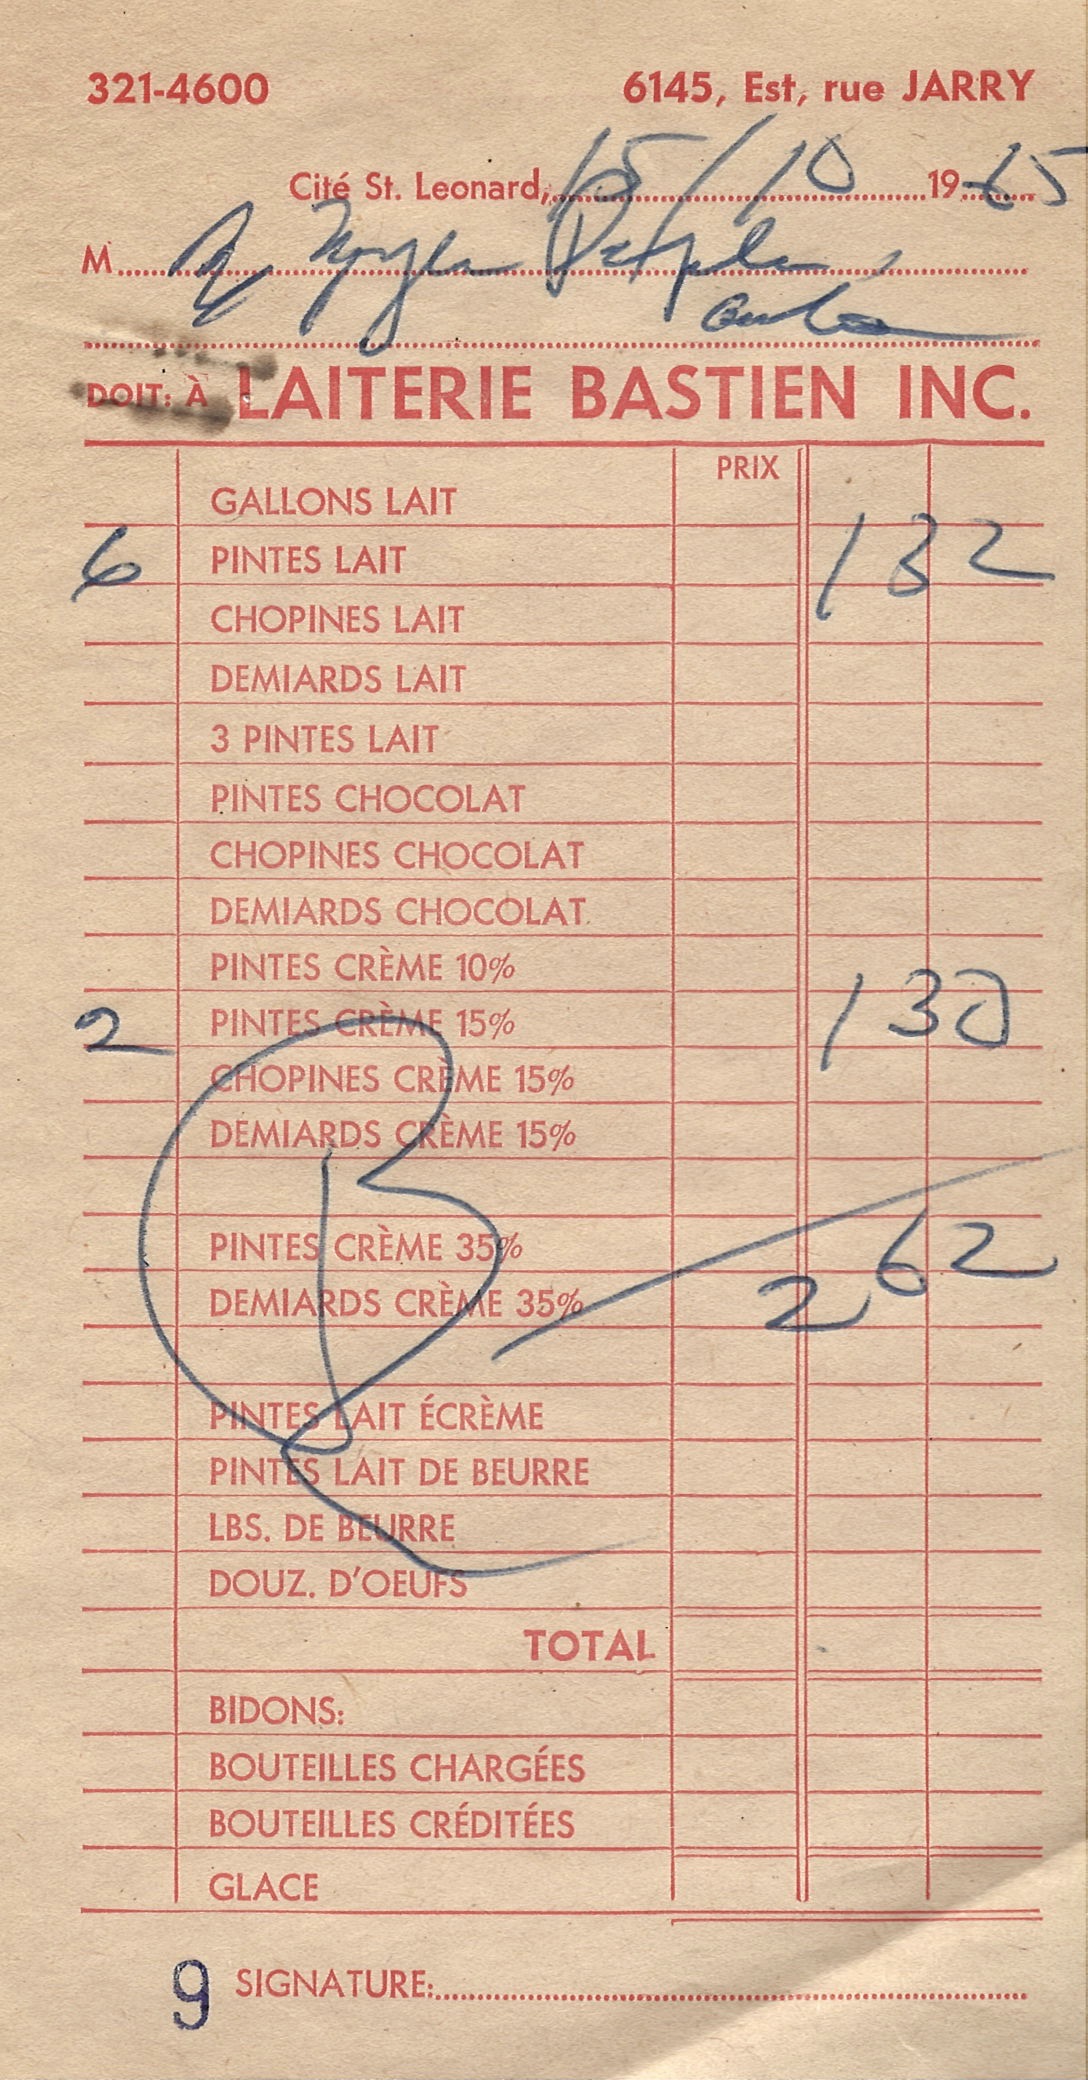 321-4600 6145, Est, rue JARRY
Cité St. Leonard, 15/10 1965
M
DOIT: À LAITERIE BASTIEN INC.
PRIX
GALLONS LAIT
6 PINTES LAIT 1 32
CHOPINES LAIT
DEMIARDS LAIT
3 PINTES LAIT
PINTES CHOCOLAT
CHOPINES CHOCOLAT
DEMIARDS CHOCOLAT
PINTES CRÈME 10%
2 PINTES CRÈME 15% 1 30
CHOPINES CRÈME 15%
DEMIARDS CRÈME 15%
PINTES CRÈME 35% 2 62
DEMIARDS CRÈME 35%
PINTES LAIT ÉCRÈME
PINTES LAIT DE BEURRE
LBS. DE BEURRE
DOUZ. D'OEUFS
TOTAL
BIDONS:
BOUTEILLES CHARGÉES
BOUTEILLES CRÉDITÉES
GLACE
9 SIGNATURE: